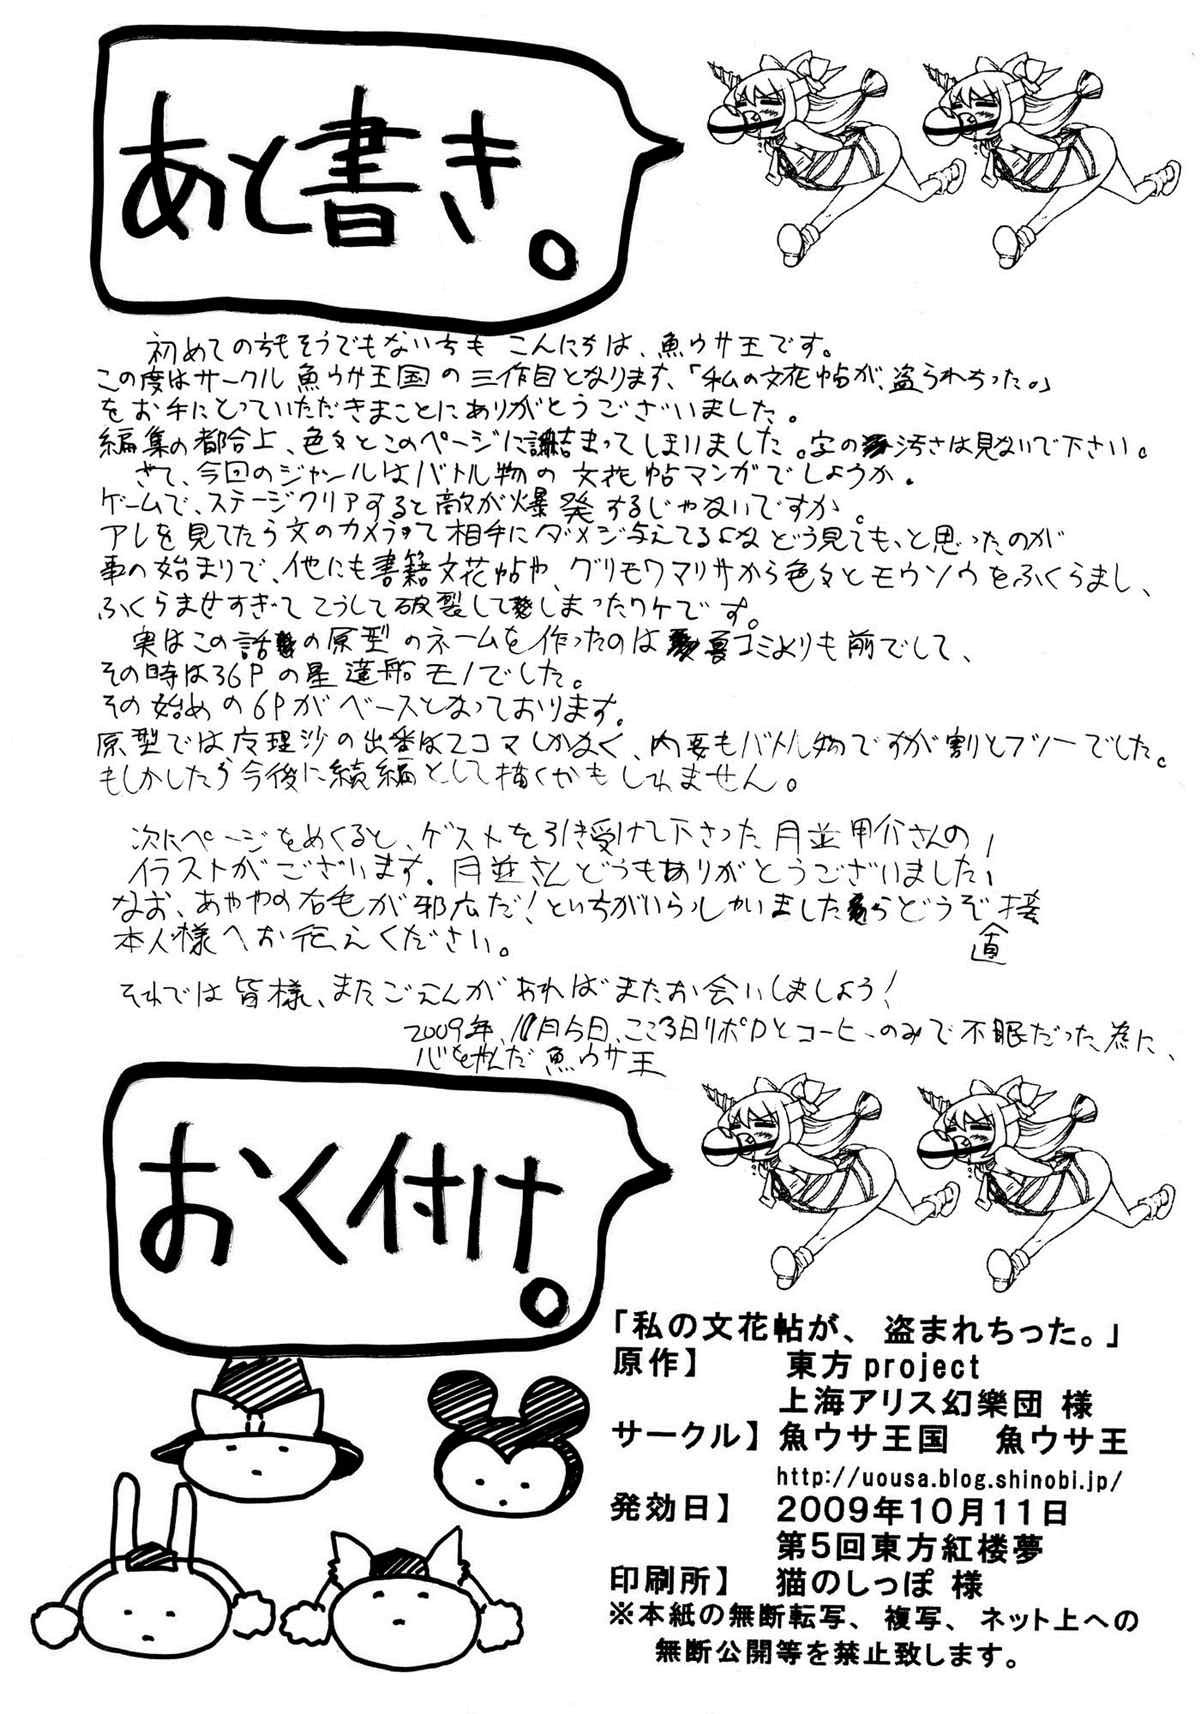 あと書き。
初めての方もそうでもない方も こんにちは、魚ウサ王です。
この度はサークル 魚ウサ王国の三作目となります、「私の文花帖が、盗られちった。」
をお手にとっていただきまことにありがとうございました。
編集の都合上、色々とこのページに詰まってしまいました。字の汚さは見ないで下さい。
さて、今回のジャンルはバトル物の文花帖マンガでしょうか。
ゲームで、ステージクリアすると敵が爆発するじゃないですか。
アレを見てたら文のカメラって相手にダメージ与えてるよな どう見ても、と思ったのが
事の始まりで、他にも書籍文花帖や、グリモワマリサから色々とモウソウをふくらまし、
ふくらませすぎて こうして破裂してしまったワケです。
実はこの話の原型のネームを作ったのは 夏コミよりも前でして、
その時は36Pの星蓮船モノでした。
その始めの6Pがベースとなっております。
原型では魔理沙の出番は2コマしかなく、内容もバトル物ですが割とフツーでした。
もしかしたら今後に続編として描くかもしれません。
次にページをめくると、ゲストを引き受けて下さった月並甲介さんの
イラストがございます。月並さんどうもありがとうございました!
なお、あややの右毛が邪広だ!という方がいらっしゃいましたらどうぞ直接
本人様へお伝えください。
それでは皆様、またごえんがあればまたお会いしましょう!
2009年、10月5日、ここ3日リポDとコーヒーのみで不眠だった為に、
心をやんだ 魚ウサ王
おく付け。
「私の文花帖が、盗まれちった。」
原作】 東方project
上海アリス幻樂団 様
サークル】 魚ウサ王国 魚ウサ王
http://uousa.blog.shinobi.jp/
発効日】 2009年10月11日
第5回東方紅楼夢
印刷所】 猫のしっぽ 様
※本紙の無断転写、複写、ネット上への
無断公開等を禁止致します。